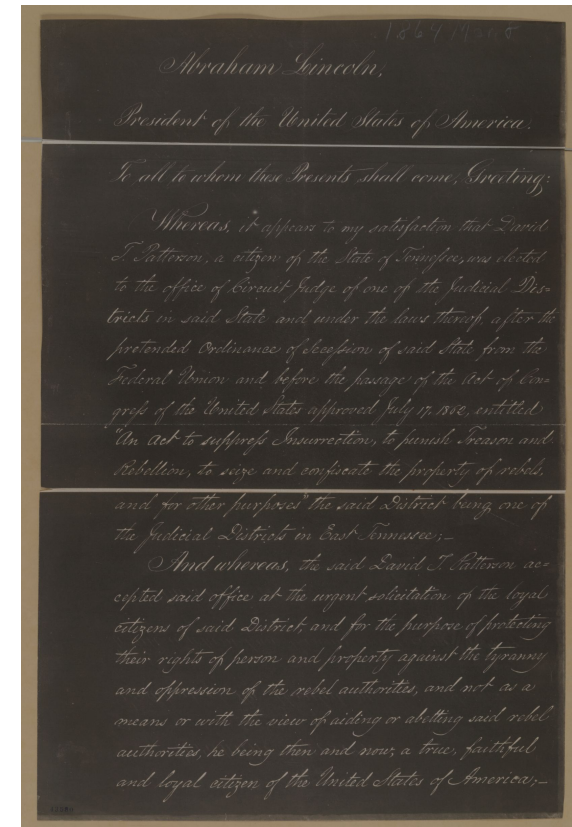 Abraham Lincoln,
President of the United States of America.
To all to whom these Presents shall come, Greeting:
Whereas, it appears to my satisfaction that David
T. Patterson, a citizen of the State of Tennessee, was elected
to the office of Circuit Judge of one of the Judicial Dis-
tricts in said State and under the laws thereof, after the
pretended Ordinance of Secession of said State from the
Federal Union and before the passage of the Act of Con-
gress of the United States approved July 17, 1862, entitled
"An Act to suppress Insurrection, to punish Treason and
Rebellion, to seize and confiscate the property of rebels,
and for other purposes" the said District being one of
the Judicial Districts in East Tennessee;-
And whereas, the said David T. Patterson ac-
cepted said office at the urgent solicitation of the loyal
citizens of said District, and for the purpose of protecting
their rights of person and property against the tyranny
and oppression of the rebel authorities, and not as a
means or with the view of aiding or abetting said rebel
authorities, he being then and now, a true, faithful
and loyal citizen of the United States of America;-